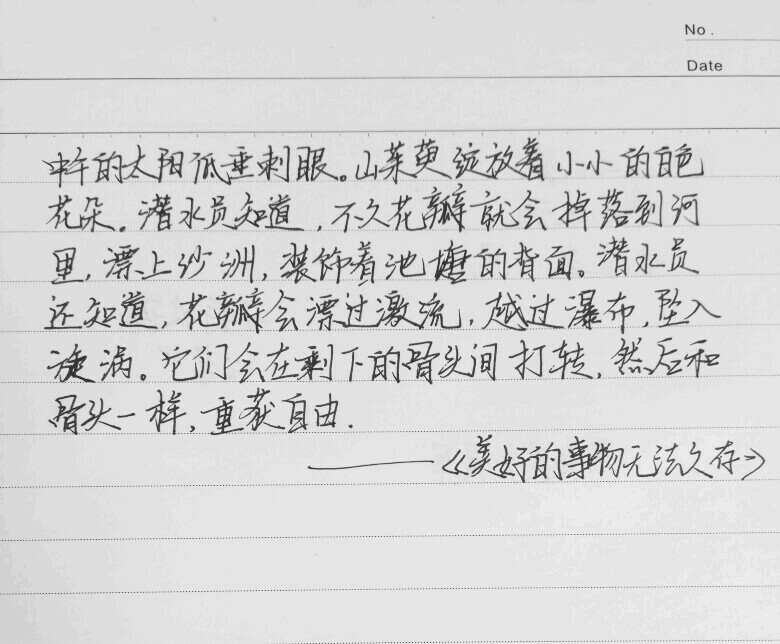 No.
Date
中午的太阳低垂刺眼。山茱萸绽放着小小的白色
花朵。潜水员知道，不久花瓣就会掉落到河
里，漂上沙洲，装饰着池塘的背面。潜水员
还知道，花瓣会漂过激流，越过瀑布，坠入
漩涡。它们会在剩下的骨头间打转，然后和
骨头一样，重获自由.
——《美好的事物无法久存》